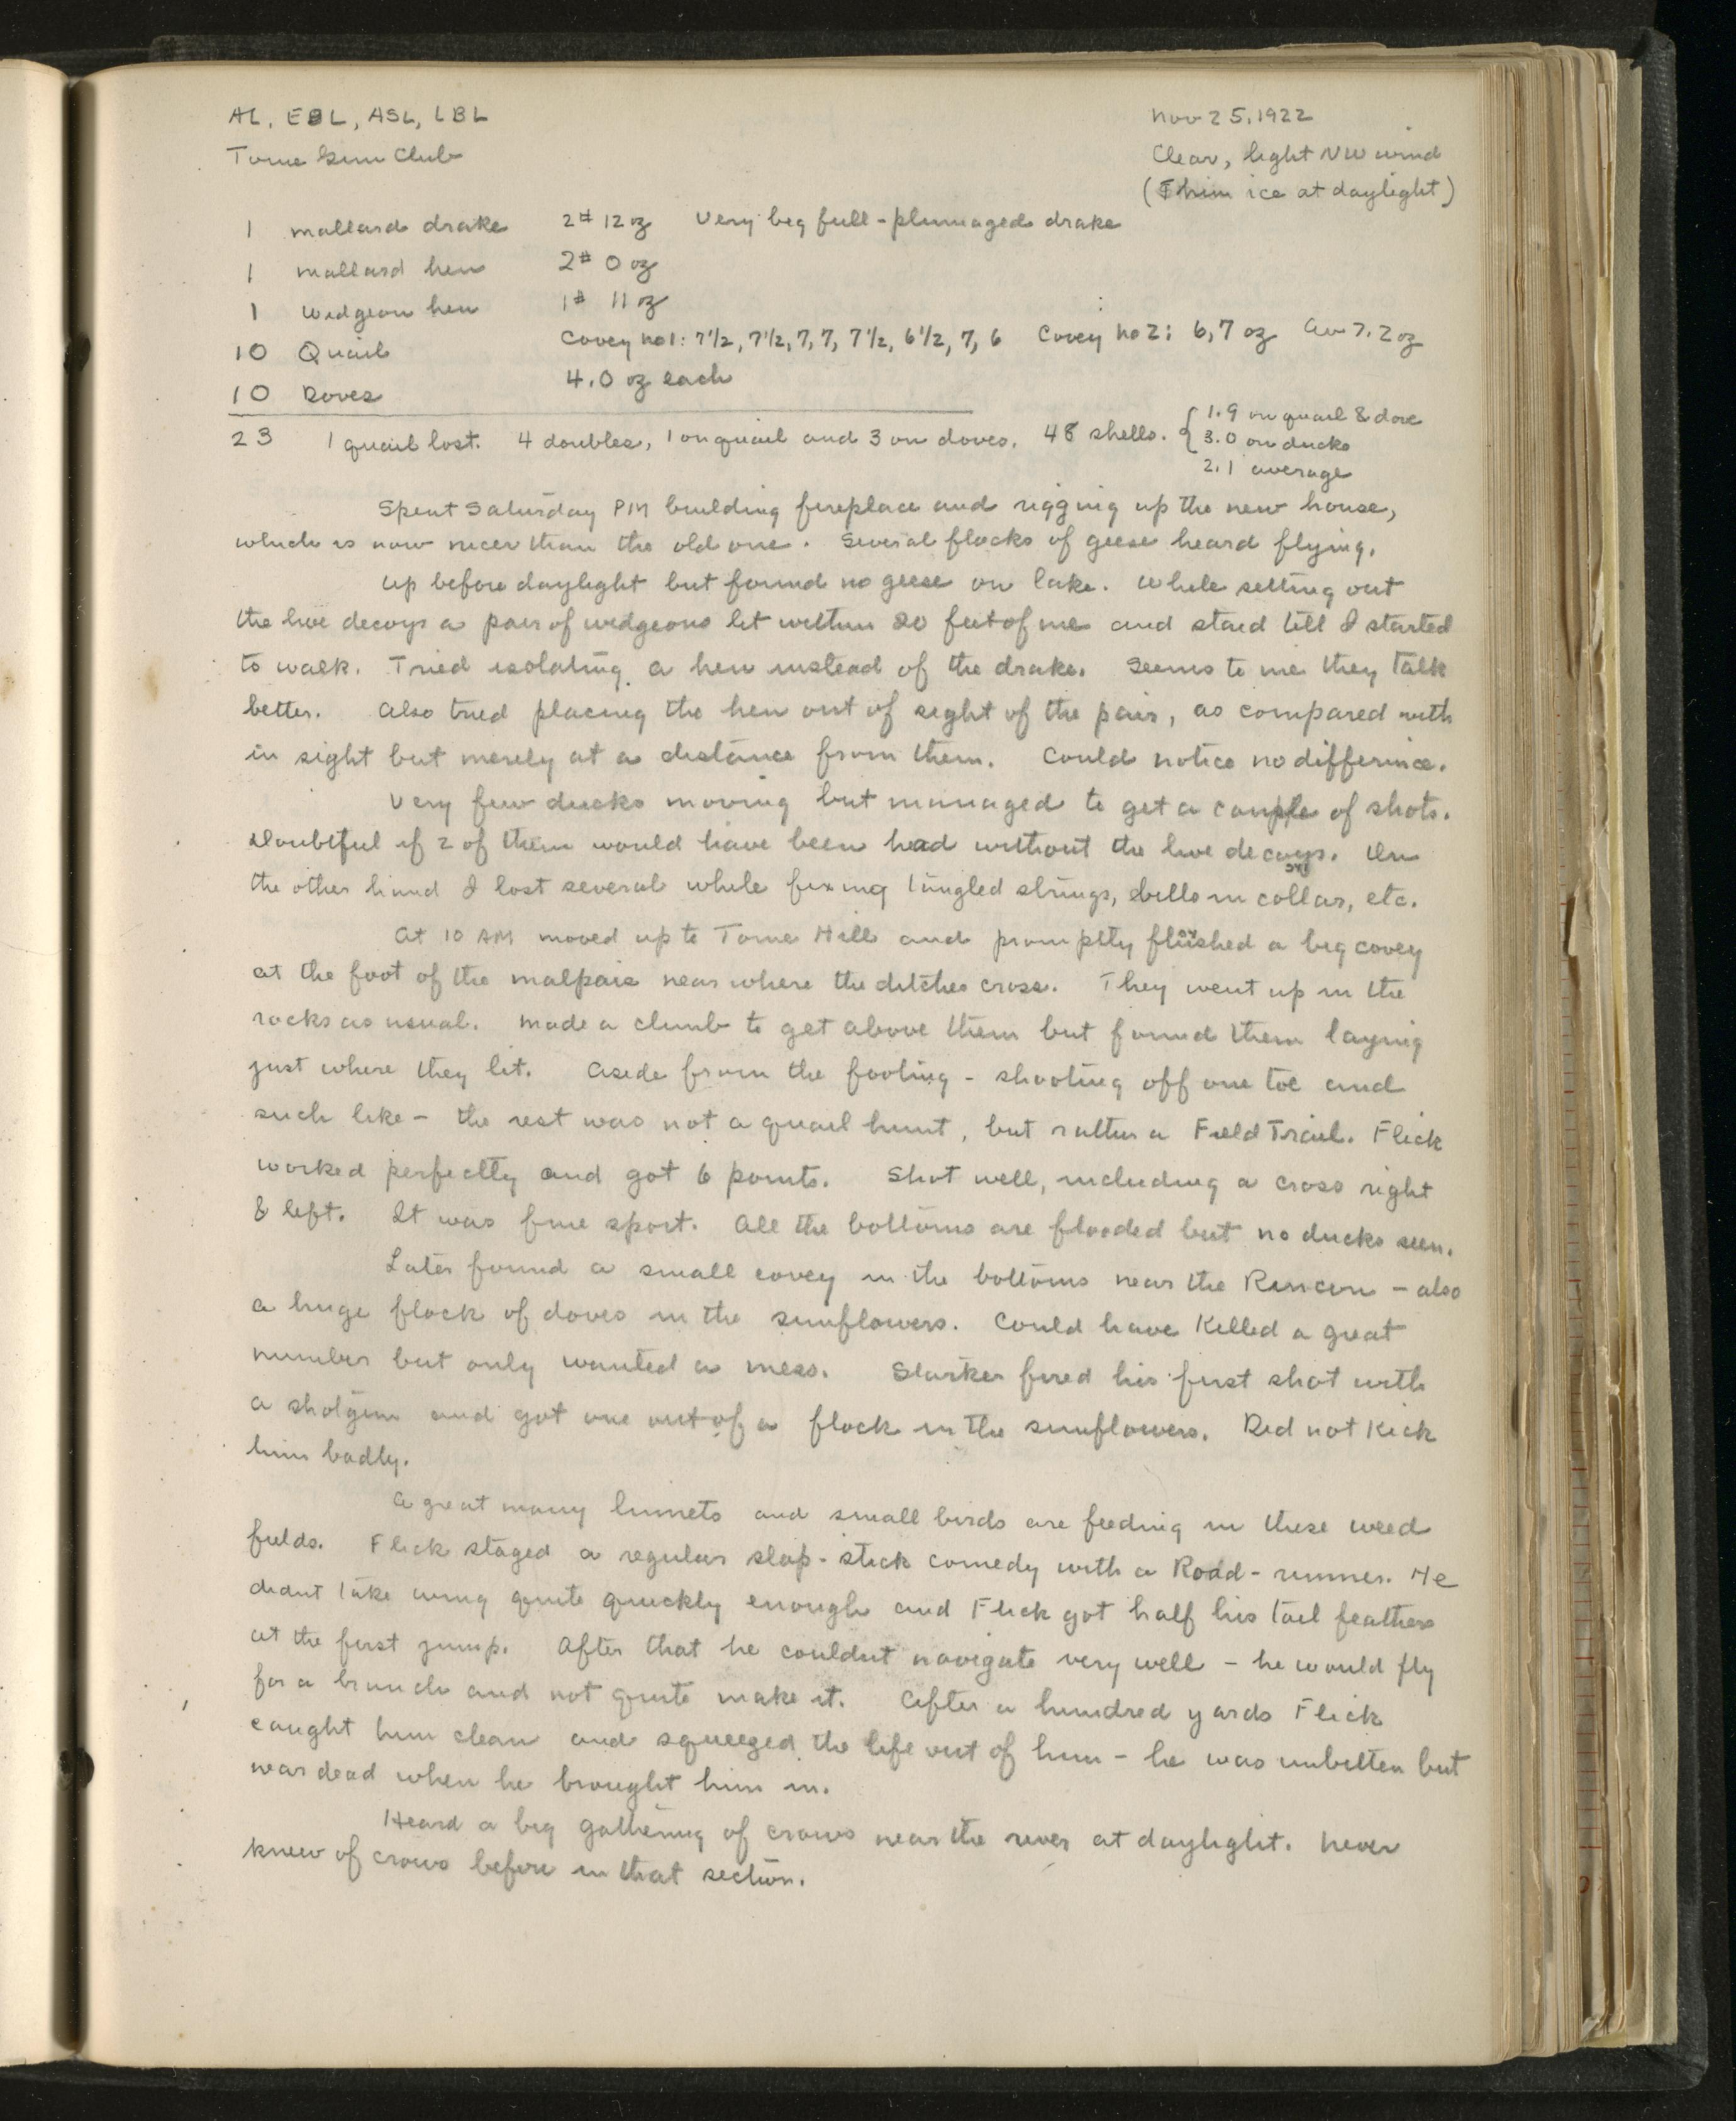 AL, EBL, ASL, LBL
Nov 25, 1922
Tome Gun Club
Clear, light NW wind
(Thin ice at daylight)
1 mallard drake 2# 12 oz Very big full-plumaged drake
1 mallard hen 2# 0 oz
1 Widgeon hen 1# 11 oz
10 Quail Covey no 1: 7 1/2, 7 1/2, 7, 7, 7 1/2, 6 1/2, 7, 6 Covey no 2: 6, 7 oz Av 7.2 oz
10 Doves 4.0 oz each
23 1 quail lost. 4 doubles, 1 on quail and 3 on doves. 48 shells. { 1.9 on quail & dove
3.0 on ducks
2.1 average
Spent Saturday PM building fireplace and rigging up the new house,
which is now nicer than the old one. Several flocks of geese heard flying.
Up before daylight but found no geese on lake. While setting out
the live decoys a pair of widgeons lit within 20 feet of me and staid till I started
to walk. Tried isolating a hen instead of the drake. Seems to me they talk
better. Also tried placing the hen out of sight of the pair, as compared with
in sight but merely at a distance from them. Could notice no difference.
Very few ducks moving but managed to get a couple of shots.
Doubtful if 2 of them would have been had without the live decoys. On
the other hand I lost several while fixing tangled strings, bills in collar, etc.
At 10 AM moved up to Tome Hill and promptly flushed a big covey
at the foot of the malpais near where the ditches cross. They went up in the
rocks as usual. Made a climb to get above them but found them laying
just where they lit. Aside from the footing - shooting off one toe and
such like - the rest was not a quail hunt, but rather a Field Trail. Flick
worked perfectly and got 6 points. Shot well, including a cross right
& left. It was fine sport. All the bottoms are flooded but no ducks seen.
Later found a small covey in the bottoms near the Rincon - also
a huge flock of doves in the sunflowers. Could have killed a great
number but only wanted a mess. Starker fired his first shot with
a shotgun and got one out of a flock in the sunflowers. Did not kick
him badly.
A great many linnets and small birds are feeding in these weed
fields. Flick staged a regular slap-stick comedy with a Road-runner. He
didnt take wing quite quickly enough and Flick got half his tail feathers
at the first jump. After that he couldnt navigate very well - he would fly
for a branch and not quite make it. After a hundred yards Flick
caught him clean and squeezed the life out of him - he was unbitten but
was dead when he brought him in.
Heard a big gathering of crows near the river at daylight. Never
knew of crows before in that section.